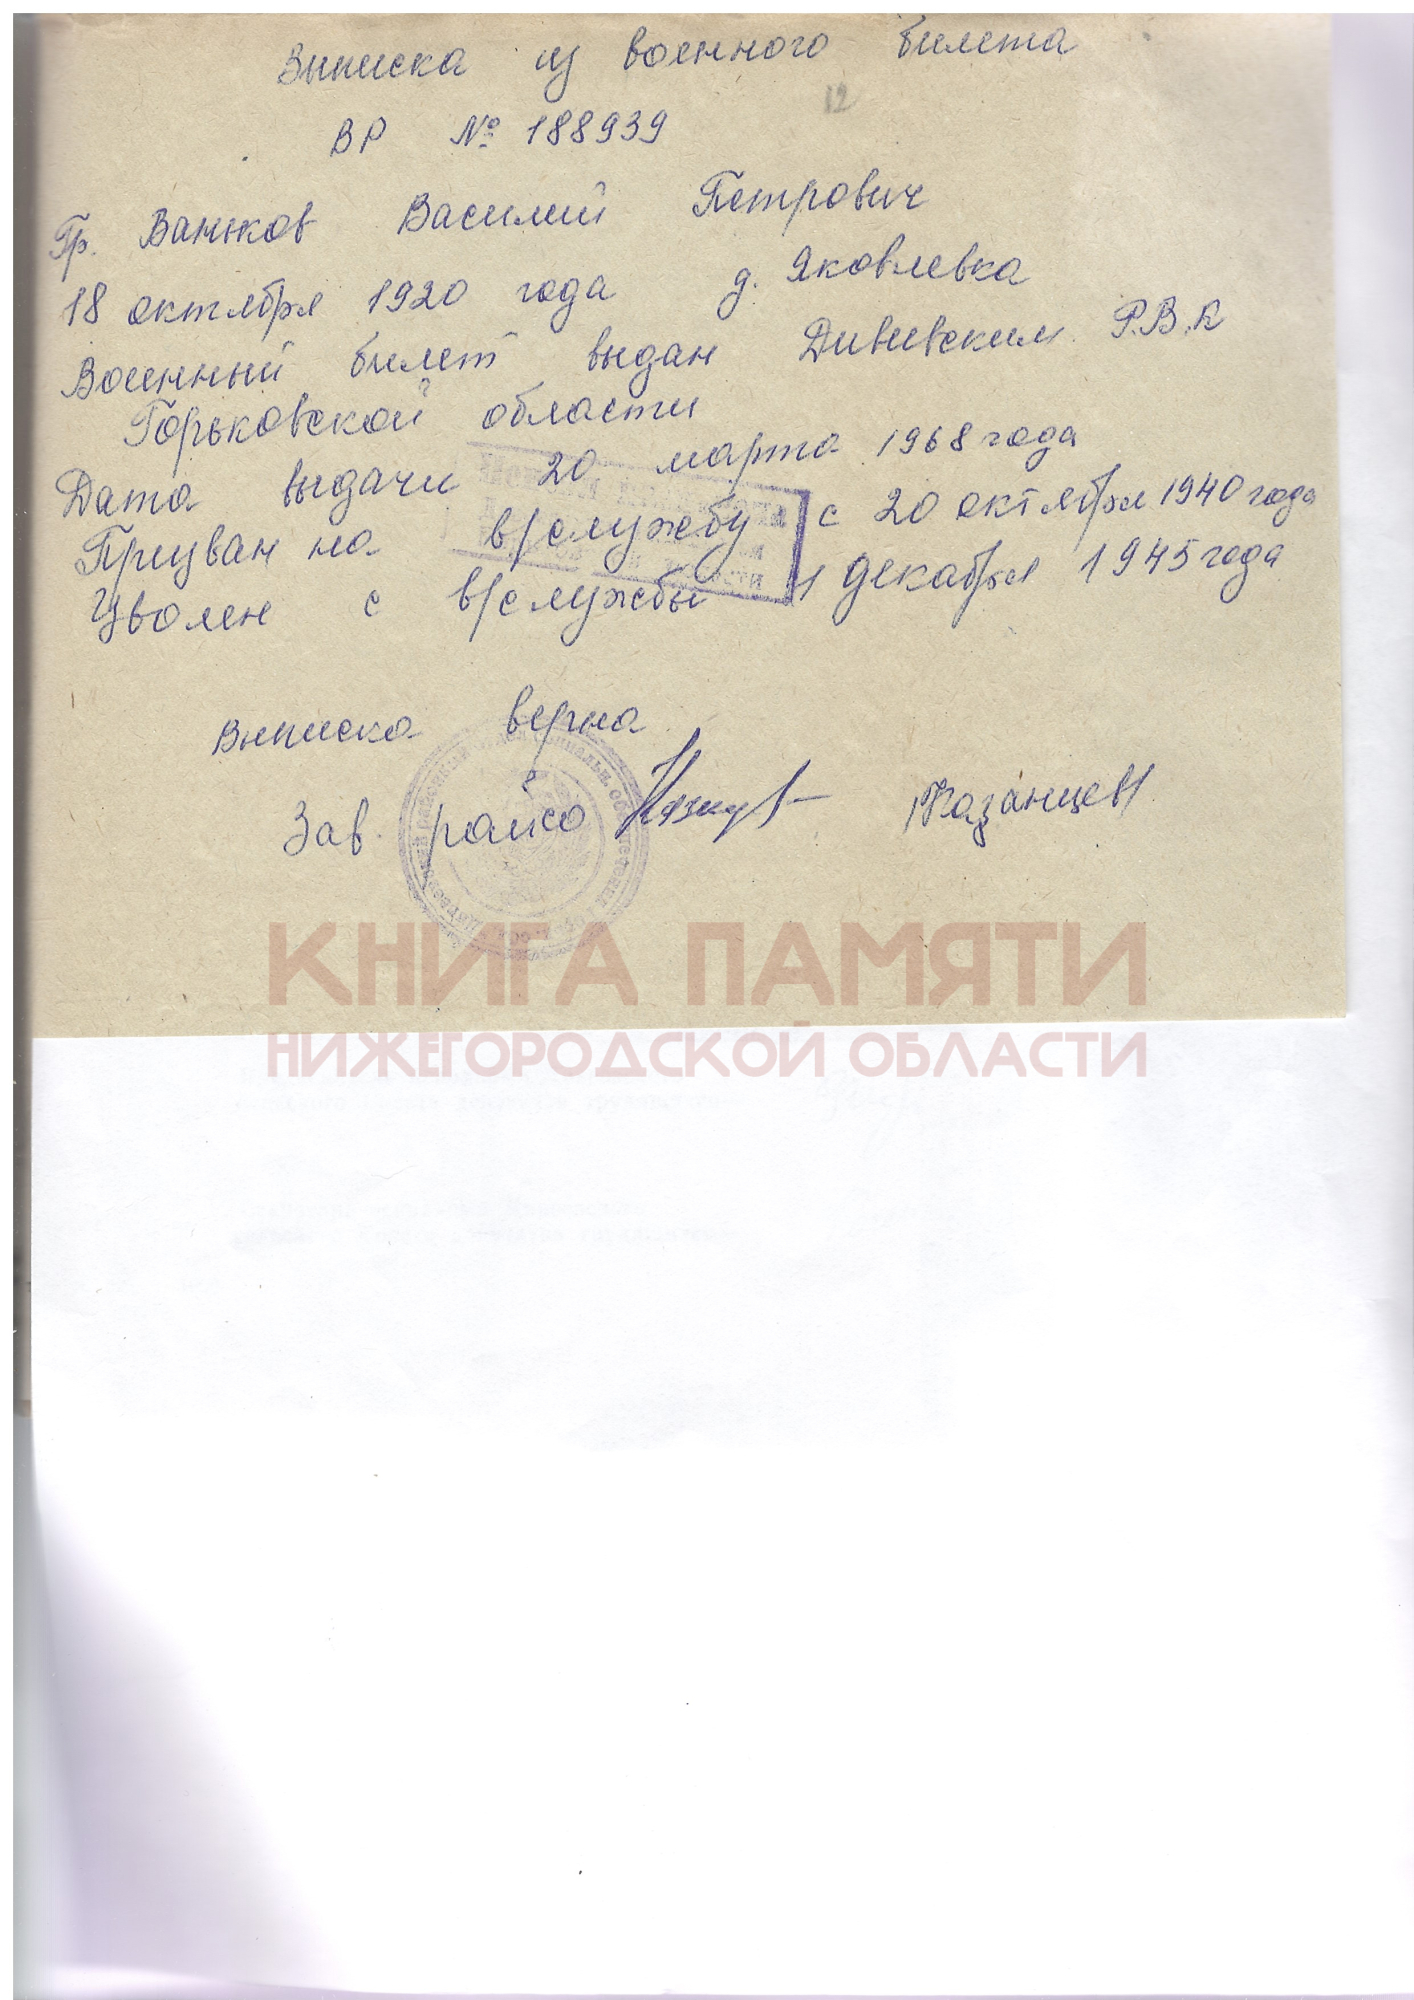 Выписка из военного билета
12
ВР № 188939
Гр. Ваньков Василий Петрович
18 октября 1920 года д. Яковлевка
Военный билет выдан Дивеевским Р.В.К
Горьковской области
Дата выдачи 20 марта 1968 года
Призван на в/службу с 20 октября 1940 года
Уволен с в/службы и декабря 1945 года
Выписка верна
Зав. райсо /Казанцев/
КНИГА ПАМЯТИ
НИЖЕГОРОДСКОЙ ОБЛАСТИ